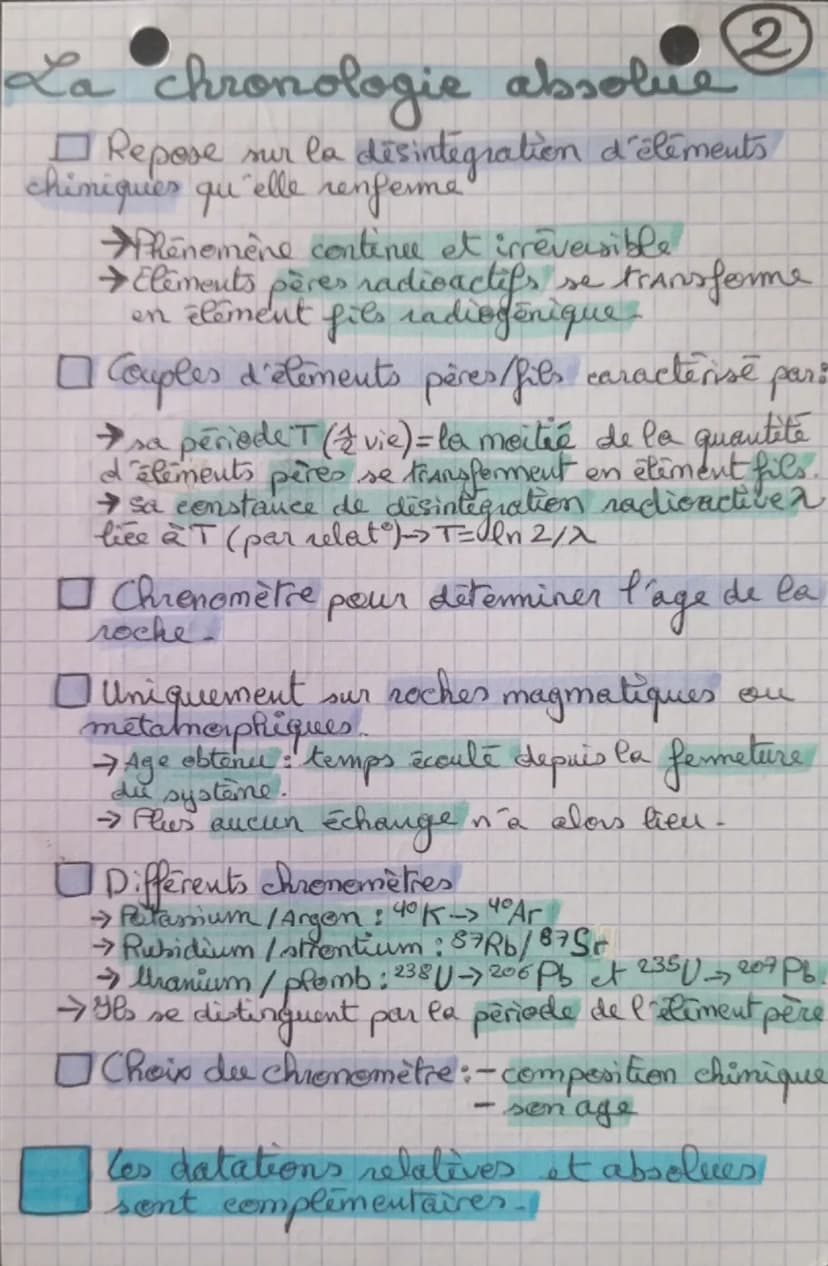 2
La chronologie absolue
Repose sur la désintégration d'éléments
chimiques qu'elle renferme
→ Phénomène continue et irréversible
→ Eléments pères radioactifs se transforme
en élément fils radiogénique.
Couples d'éléments pères/fils caractérisé par:
→ sa période T (½ vie) = la moitié de la quantité
d'éléments pères se transforment en élément fils.
→ sa constance de désintégration radioactive λ
liée à T (par relat°) → T = ln 2/λ
Chronomètre pour déterminer l'age de la
roche.
Uniquement sur roches magmatiques ou
métamorphiques.
→ Age obtenu : temps écoulé depuis la fermeture
du système.
→ Plus aucun échange n'a alors lieu.
Différents chronomètres
→ Potassium / Argon : ⁴⁰K → ⁴⁰Ar
→ Rubidium / strontium : ⁸⁷Rb / ⁸⁷Sr
→ Uranium / plomb : ²³⁸U → ²⁰⁶Pb et ²³⁵U → ²⁰⁷Pb.
→ Ils se distinguent par la période de l'élément père
Choix du chronomètre : - composition chimique
- son age
Les datations relatives et absolues
sont complémentaires.